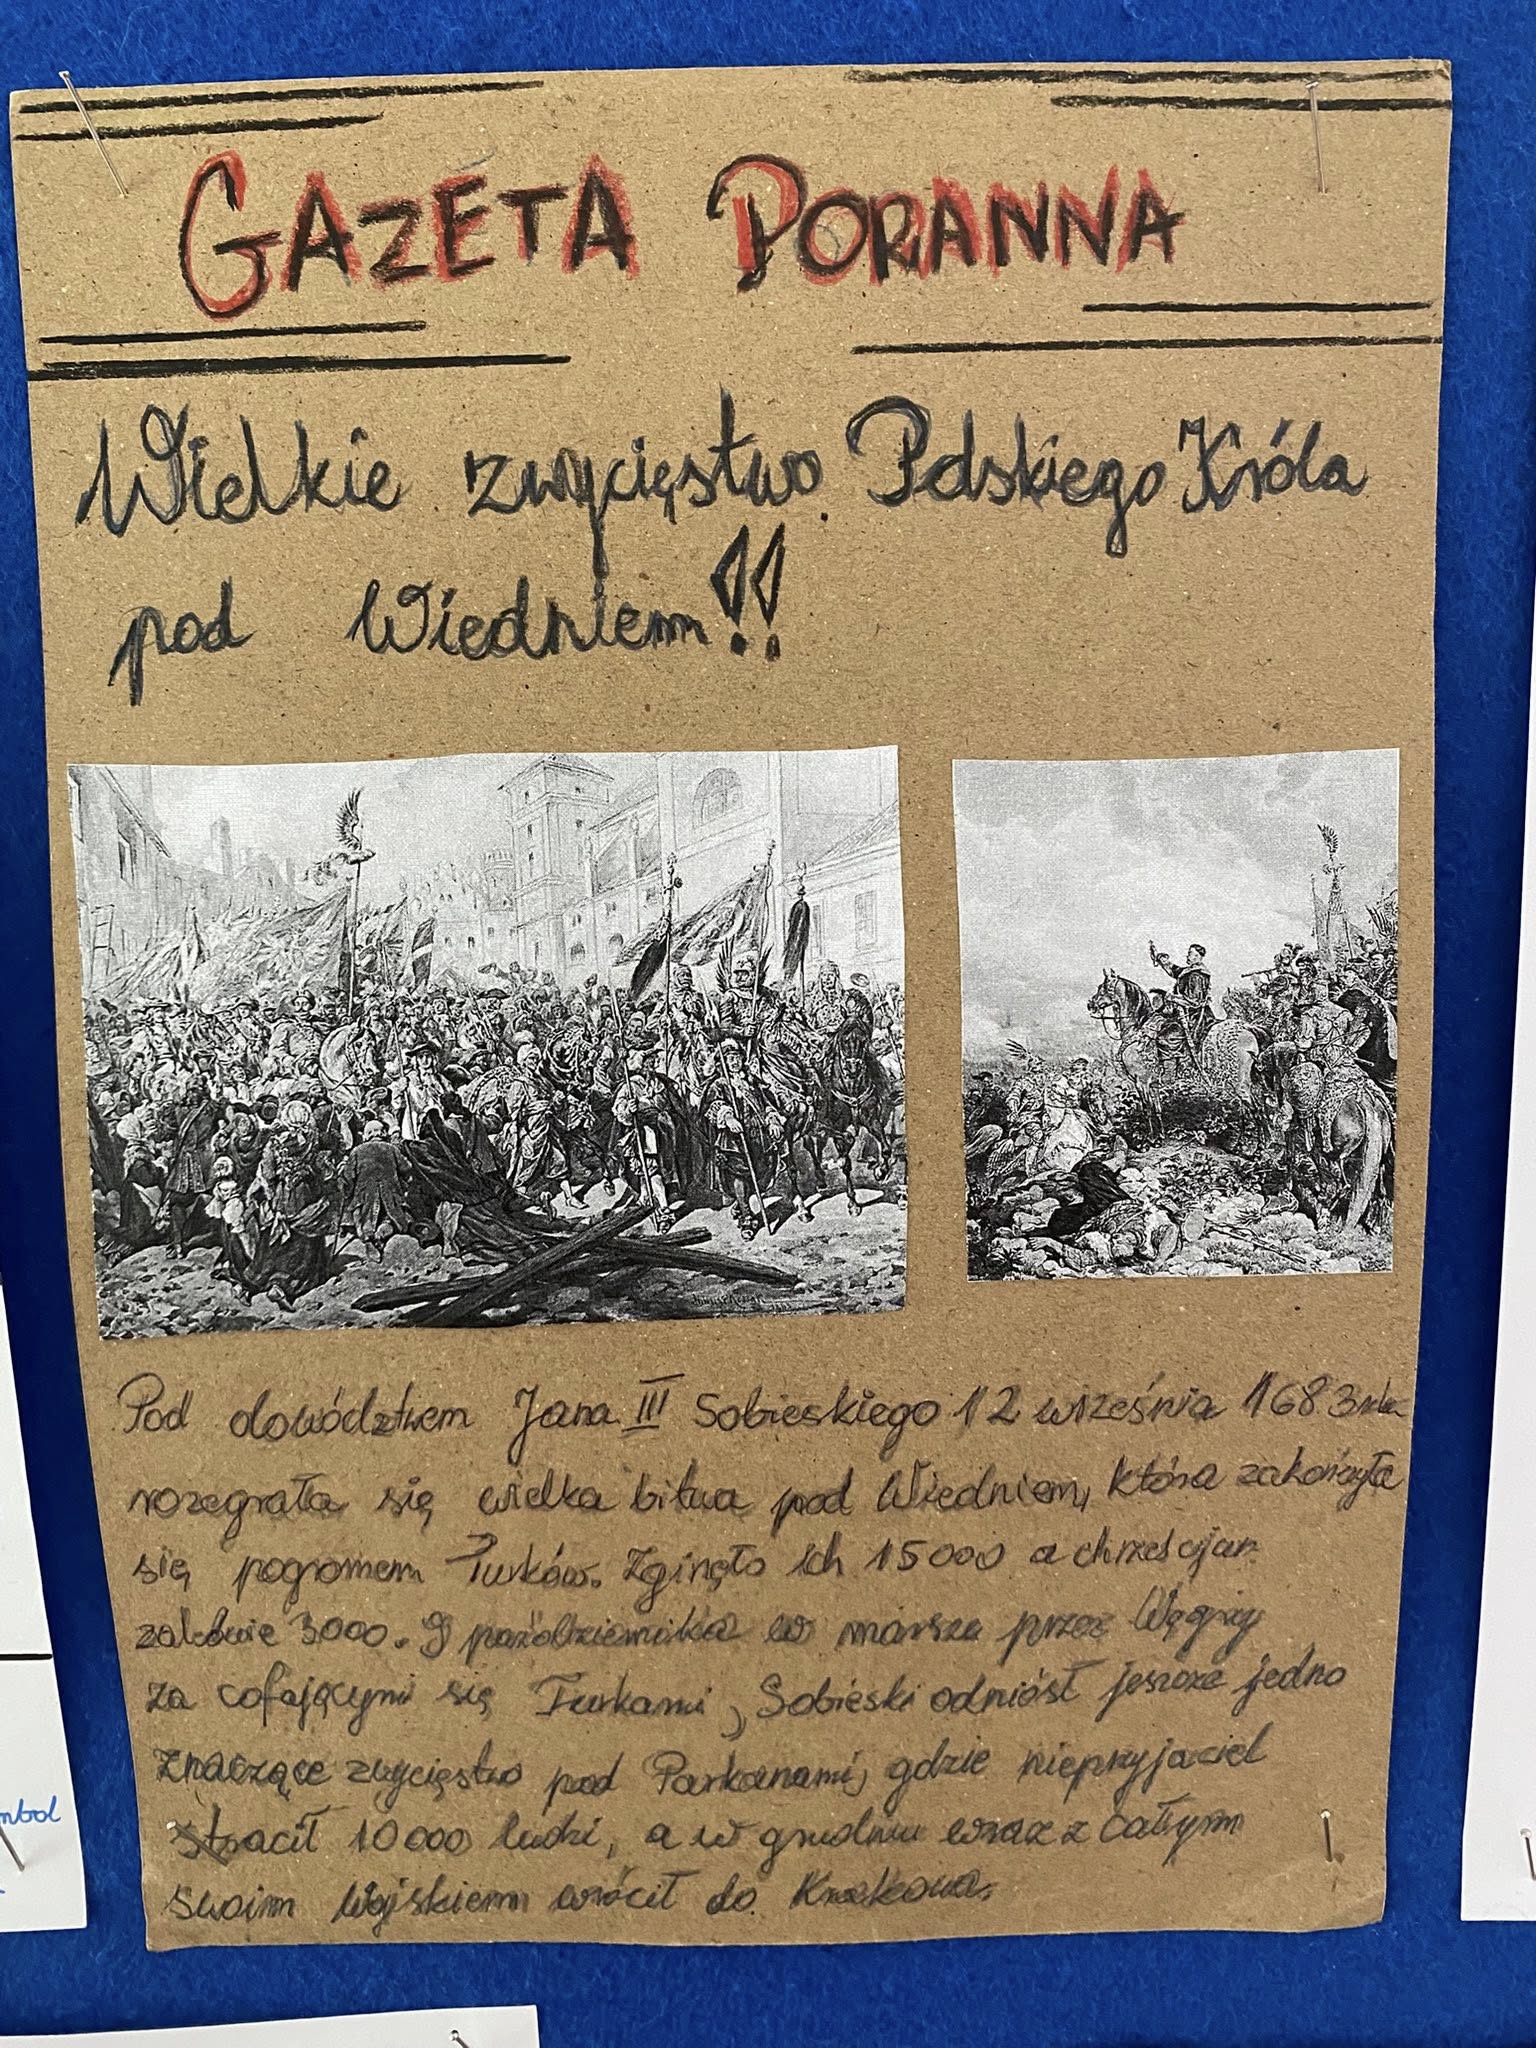 GAZETA PORANNA
Wielkie zwycięstwo Polskiego Króla
pod Wiedniem!!
Pod dowództwem Jana III Sobieskiego 12 września 1683 roku
rozegrała się wielka bitwa pod Wiedniem, która zakończyła
się pogromem Turków. Zginęło ich 15000 a chrześcijan
zaledwie 3000. 9 października w marszu przez Węgry
za cofającymi się Turkami, Sobieski odniósł jeszcze jedno
znaczące zwycięstwo pod Parkanami, gdzie nieprzyjaciel
stracił 10000 ludzi, a w grudniu wraz z całym
swoim wojskiem wrócił do Krakowa.
mbol